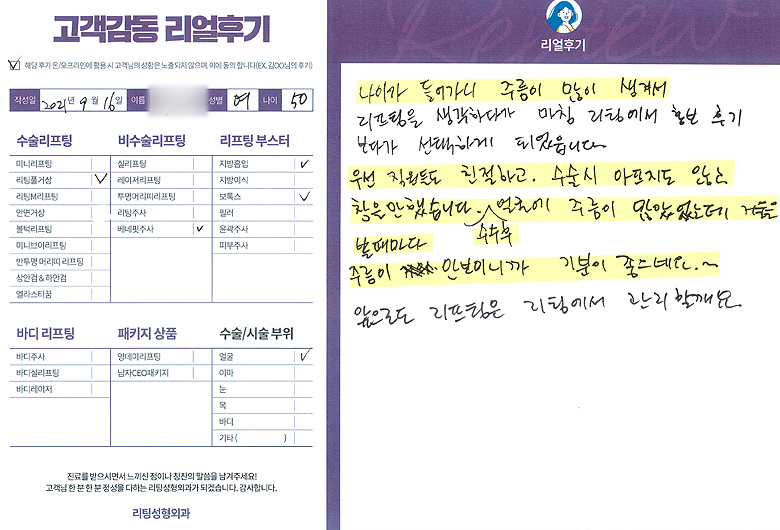 고객감동 리얼후기
해당 후기 온/오프라인에 활용 시 고객님의 성함은 노출되지 않으며, 이에 동의 합니다(EX. 김OO님의 후기)
작성일 2021년 9월 16일 이름 성별 여 나이 50
수술리프팅
미니리프팅
리팅풀거상
리팅M리프팅
안면거상
볼턱리프팅
미니브이리프팅
반투명 머리띠 리프팅
상안검 & 하안검
엘라스티꿈
비수술리프팅
실리프팅
레이저리프팅
투명머리띠리프팅
리팅주사
베네핏주사
리프팅 부스터
지방흡입
지방이식
보톡스
필러
윤곽주사
피부주사
바디 리프팅
바디주사
바디실리프팅
바디레이저
패키지 상품
엉데이리프팅
남자CEO패키지
수술/시술 부위
얼굴
이마
눈
목
바디
기타 ( )
진료를 받으시면서 느끼신 점이나 칭찬의 말씀을 남겨주세요!
고객님 한 분 한 분 정성을 다하는 리팅성형외과가 되겠습니다. 감사합니다.
리팅성형외과
Review
리얼후기
나이가 들어가니 주름이 많이 생겨서
리프팅을 생각하다가 마침 리팅에서 홍보 후기
보다가 선택하게 되었습니다
우선 직원들도 친절하고. 수술시 아프지도 않고
참을만했습니다. 얼굴에 주름이 많았었는데 거울을
수술후
볼때마다
주름이 안보이니까 기분이 좋으네요.~
앞으로도 리프팅은 리팅에서 관리할께요